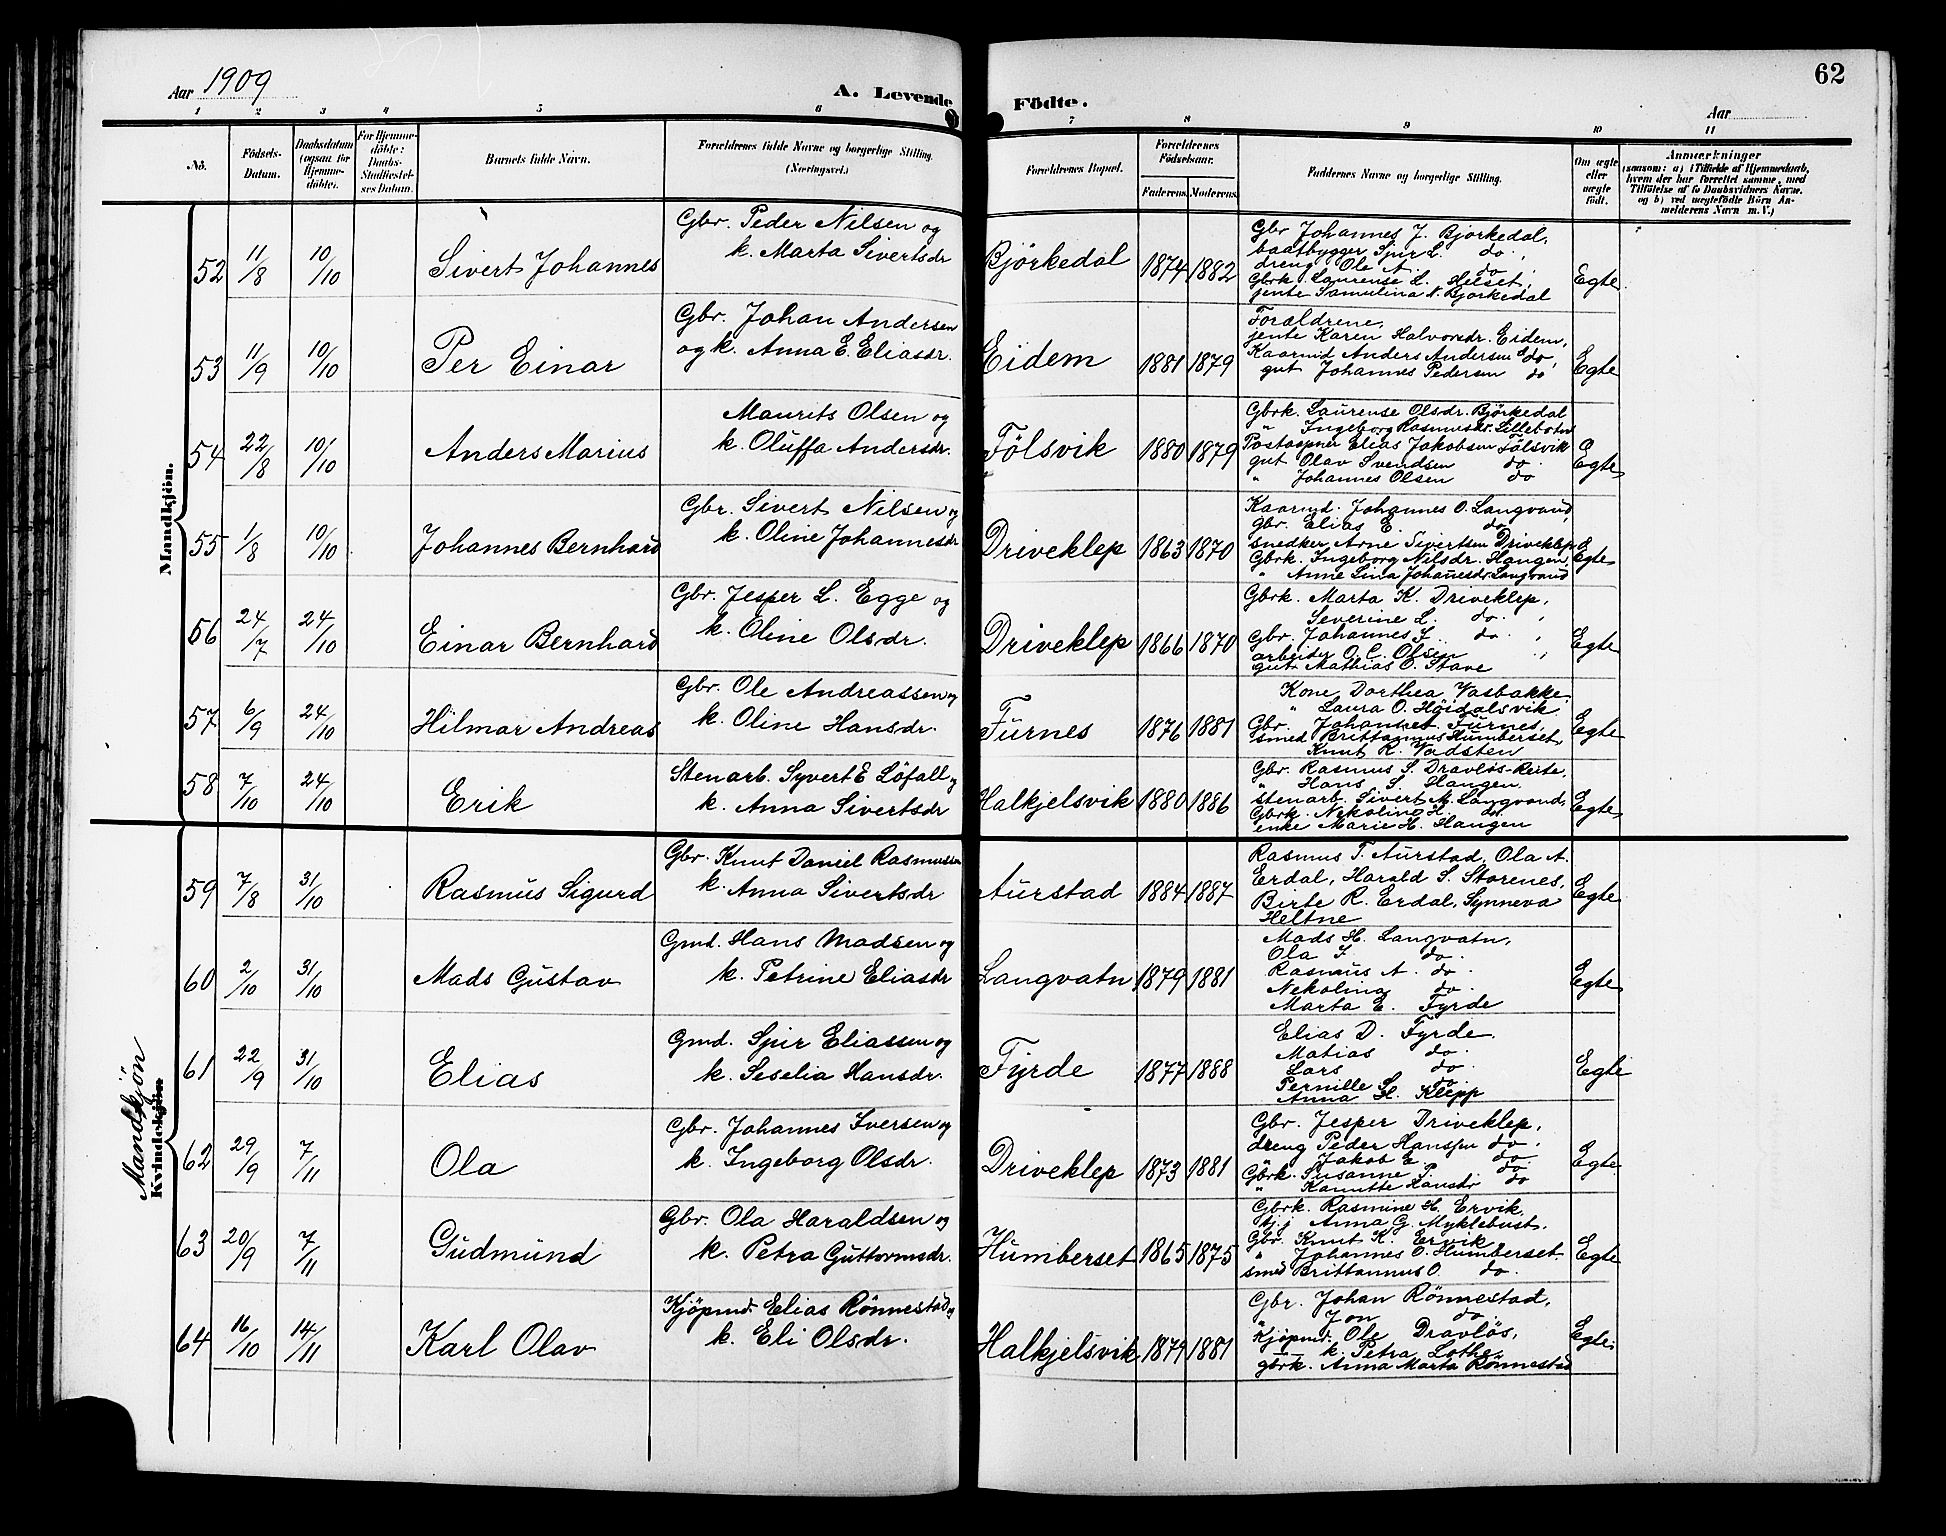 Aar 1909
A. Levende
Födte.
Aar
62
1 2 3 4 5 6 7 8 9 10 11
No.
Födsels-Datum.
Daabsdatum (ogsaa for Hjemme-döbte).
For Hjemme-döbte: Daabs-Stadfæstel-ses Datum.
Barnets fulde Navn.
Forældrenes fulde Navne og borgerlige Stilling. (Næringsvei.)
Forældrenes Bopæl.
Forældrenes Födselsaar.
Faderens. Moderens.
Faddernes Navne og borgerlige Stilling.
Om ægte eller uægte født.
Anmærkninger
(saasom: a) i Tilfælde af Hjemmedaab, hvem der har forrettet samme, med Tilföielse af to Daabsvidners Navne, og b) ved uægtefödte Börn An-melderens Navn m. V.)
Mandkjön.
52 11/8 10/10 Sivert Johannes
Gbr. Peder Nilsen og
k. Marta Sivertsdr
Björkedal 1874 1882
Gbr Johannes J. Björkedal,
baatbygger Spir L. do.,
dreng Ole A. do,
Gbrk. Laurense L. Helset,
jente Samulina N. Björkedal
Egte
53 11/9 10/10 Per Einar
Gbr. Johan Andersen
og k. Anna E. Eliasdr.
Eidem 1881 1879
Forældrene,
jente Karen Halvorsdr. Eidem,
Kaarmd Anders Andersen do,
gut Johannes Pedersen do
Egte
54 22/8 10/10 Anders Marius
Maurits Olsen og
k. Oluffa Andersdr.
Fölsvik 1880 1879
Gbrk. Laurense Olsdr. Björkedal
" Ingeborg Rasmusdr. Lillebotten
Postaapner Elias Jakobsen Fölsvik
gut Olav Svendsen do.
" Johannes Olsen do
Egte
55 1/8 10/10 Johannes Bernhard
Gbr. Sivert Nilsen og
k. Oline Johannesdr
Driveklep 1863 1870
Kaarmd. Johannes O. Langvand,
gbr. Elias E. do,
snedker Arne Sivertsen Driveklep
Gbrk. Ingeborg Nilsdr. Haugen,
" Anne Lina Johanesdr. Langvand
Egte
56 24/7 24/10 Einar Bernhard
Gbr. Jesper L. Egge og
k. Oline Olsdr.
Driveklep 1866 1870
Gbrk. Marta K. Driveklep,
Severine L. do. ,
Gbr. Johannes I. do. ,
arbeider O. C. Olsen .,
gut Mathias O. Stave
Egte
57 6/9 24/10 Hilmar Andreas
Gbr. Ole Andreassen og
k. Oline Hansdr.
Furnes 1876 1881
Kone Dorthea Vasbakke,
" Laura O. Höidalsvik.
Gbr. Johannes Furnes,
smed Brittannus Humberset,
Knut R. Vadsten
Egte
58 7/10 24/10 Erik
Stenarb. Syvert E Löfall og
k. Anna Sivertsdr
Halkjelsvik 1880 1886
Gbr. Rasmus S. Dravlös-Reite,
" Hans S. Haugen
stenarb. Sivert M. Langvand,
Gbrk. Nekoline H. do.
enke Marie H. Haugen
Egte
Mandkjön
Kvindekjön
59 7/8 31/10 Rasmus Sigurd
Gbr. Knut Daniel Rasmussen
k. Anna Sivertsdr
Aurstad 1884 1887
Rasmus T. Aurstad, Ola A.
Erdal, Harald S. Storenes,
Birte R. Erdal, Synneva
Heltne
Egte
60 2/10 31/10 Mads Gustav
Gmd. Hans Madsen og
k. Petrine Eliasdr
Langvatn 1879 1881
Mads H. Langvatn,
Ola I. do.
Rasmus A. do.
Nekolina do.
Marta E. Fyrde
Egte
61 22/9 31/10 Elias
Gmd. Spir Eliassen og
k. Seselia Hansdr.
Fyrde 1877 1888
Elias D. Fyrde.
Matias do.
Lars do.
Pernille Sl. do
Anna Sl. Klepp
Egte
62 29/9 7/11 Ola
Gbr. Johannes Iversen og
k. Ingeborg Olsdr.
Driveklep 1873 1881
Gbr. Jesper Driveklep,
dreng Peder Hanssen do.
" Jakob E. do.
Gbrk. Susanne P. do.
" Hansdr do
Egte
63 20/9 7/11 Gudmund
Gbr. Ola Haraldsen og
k. Petra Guttormsdr.
Humberset 1865 1875
Gbrk. Rasmine H. Ervik,
tj.j Anna G. Myklebust.
Gbr. Knut K. Ervik,
" Johannes O. Humberset
smed Brittannus O. do.
Egte
64 16/10 14/11 Karl Olav
Kjöpmd. Elias Rönnestad og
k. Eli Olsdr.
Halkjelsvik 1879 1881
Gbr. Johan Rönnestad,
" Jon do.
Kjöpmd. Ole Dravlös,
k. Petra Lothe,
gbrk. Anna Marta Rönnestad
Egte